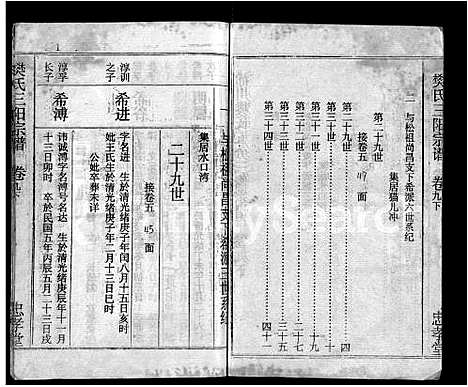 樊氏三阳宗谱 卷九下
忠孝堂
二 与松祖尚昌文下希派六世系纪
集居猫儿冲
第二十九世 接卷五 面
第三十世 十七
第三十一世 十九
第三十二世
第三十三世 三十五
第三十四世 四十一
集居水口湾
二十九世
接卷五 45 面
淳训之子
希进
字名进 生於清光绪庚子年闰八月十五日亥时
妣王氏生於清光绪庚子年二月十三日巳时
公妣卒葬未详
淳孚长子
希溥
讳诚溥字名溥号名达 生於清光绪庚辰年十一月
十三日卯时 卒於民国五年丙辰五月二十三日戌
樊氏三阳宗谱 卷九下
忠孝堂